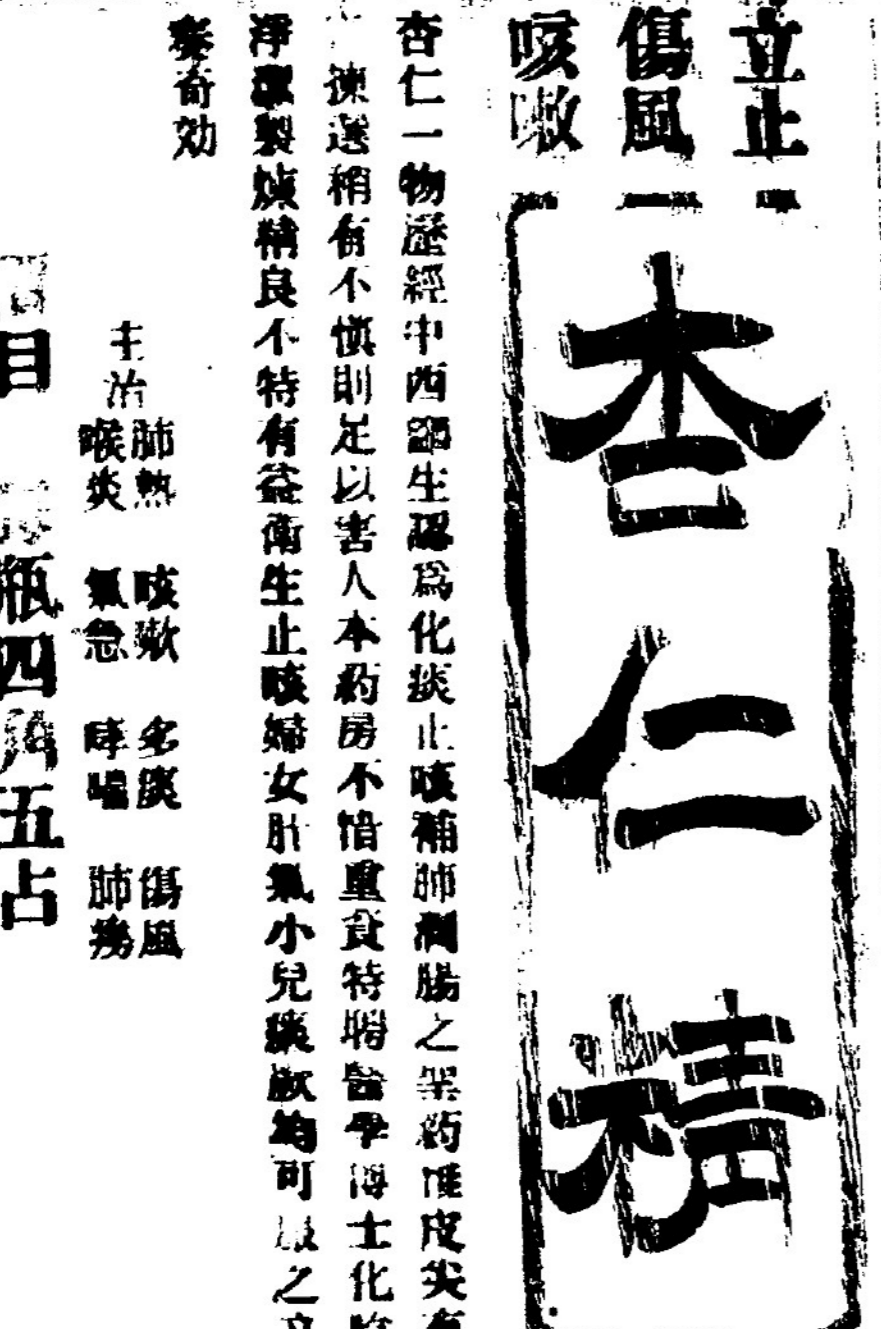 立止
傷風
咳嗽
杏仁精
杏仁一物歷經中西醫生認為化痰止咳補肺潤腸之聖药惟皮尖有
揀選稍有不慎則足以害人本药房不惜重貲特聘醫學博士化
淨潔製煉精良不特有益衛生止咳婦女肝氣小兒痰厥均可服之
奏奇効
主治
肺熱 咳嗽 多痰 傷風
喉炎 氣急 哮喘 肺癆
目 瓶四角五占